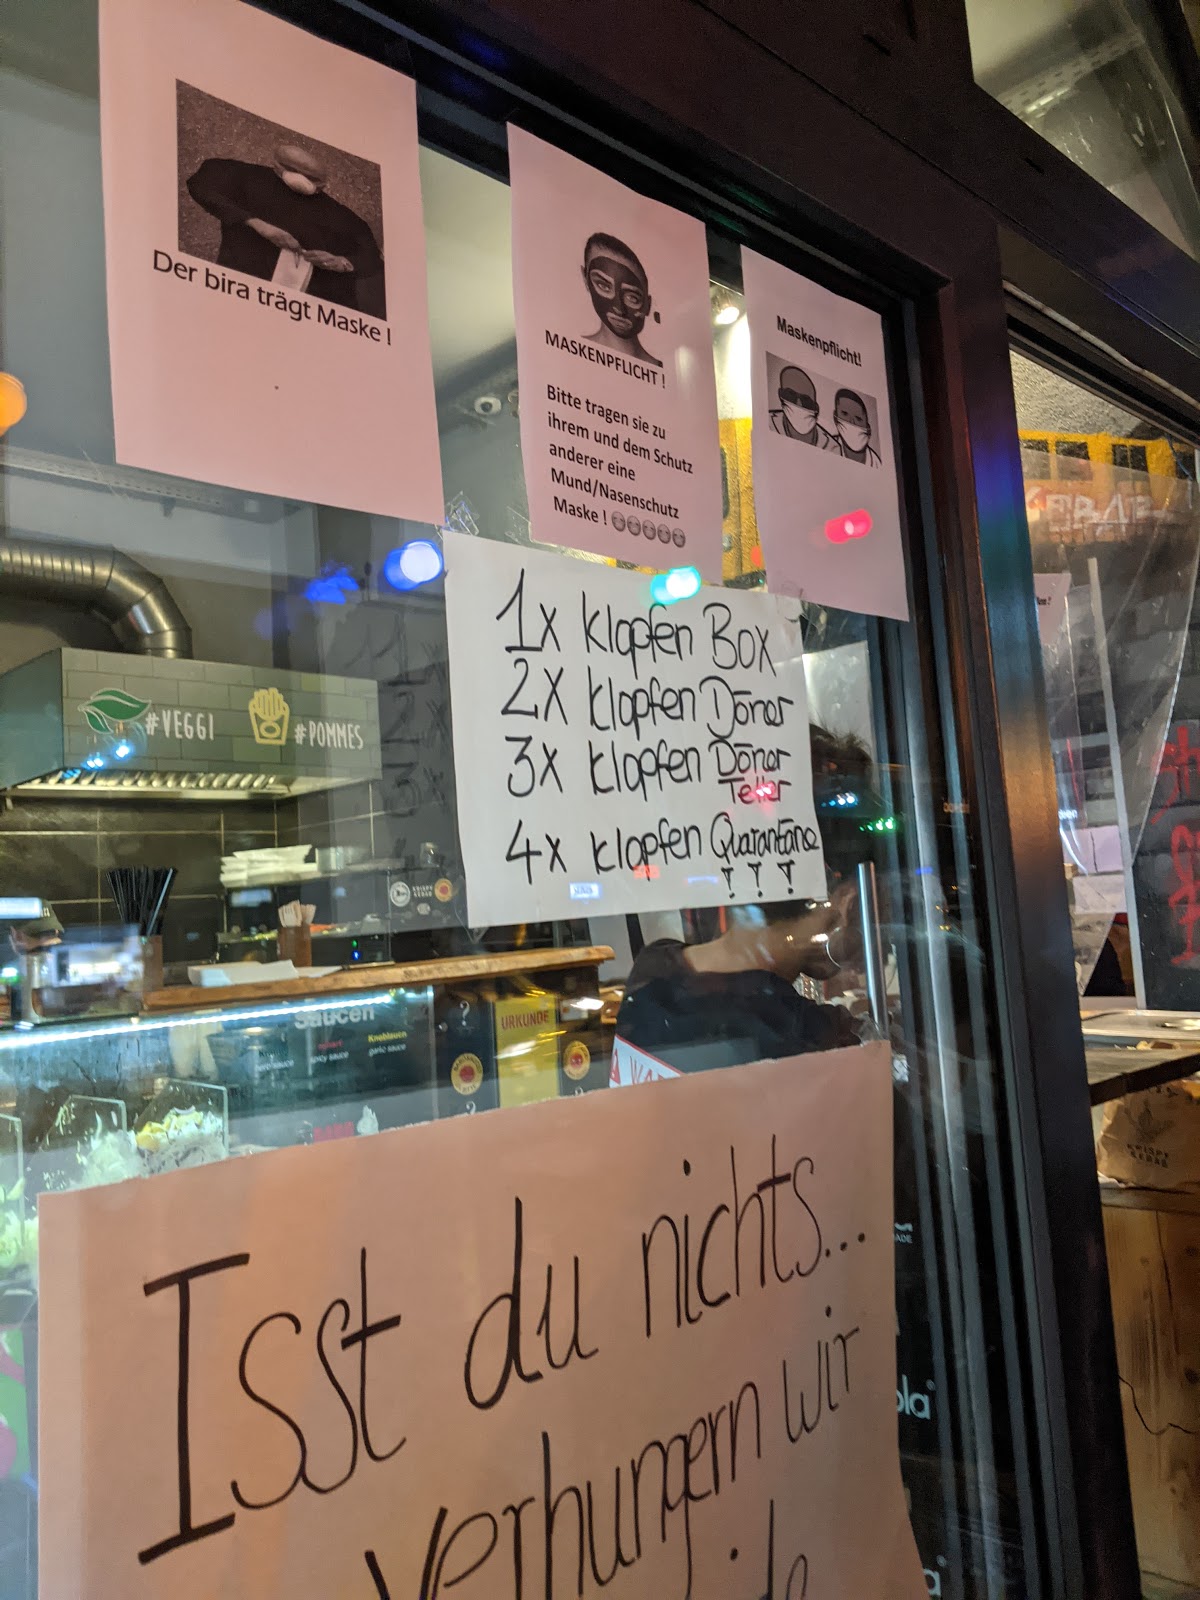 Der bira trägt Maske !
MASKENPFLICHT !
Bitte tragen sie zu
ihrem und dem Schutz
anderer eine
Mund/Nasenschutz
Maske !
Maskenpflicht!
1x klopfen Box
2x klopfen Döner
3x klopfen Döner
Teller
4x klopfen Quarantäne
! ! !
#VEGGI
#POMMES
CRISPY
KEBAB
Saucen
spicy sauce
Knoblauch
garlic sauce
URKUNDE
Isst du nichts...
verhungern wir
CRISPY
KEBAB